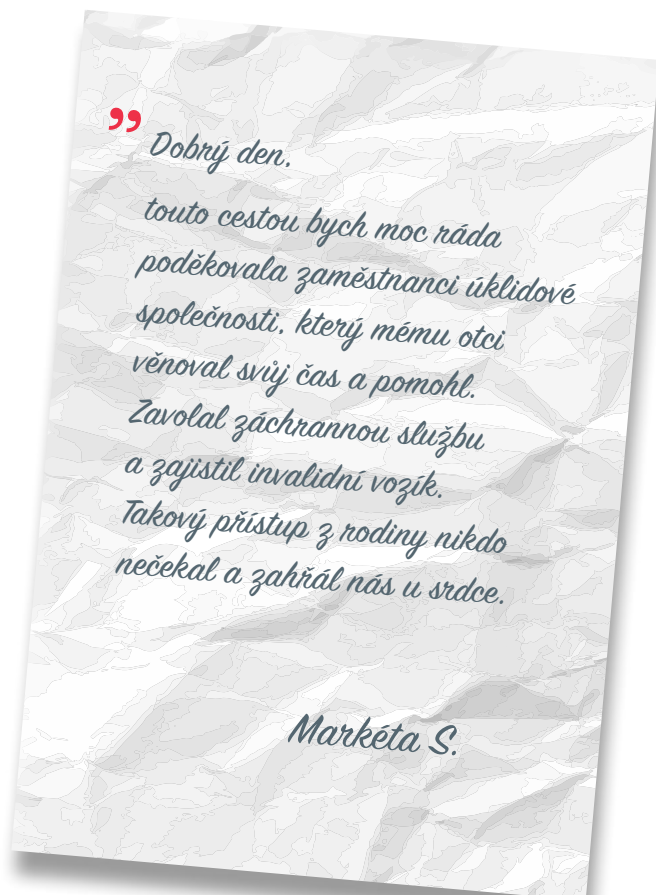 ”
Dobrý den,
touto cestou bych moc ráda
poděkovala zaměstnanci úklidové
společnosti, který mému otci
věnoval svůj čas a pomohl.
Zavolal záchrannou službu
a zajistil invalidní vozík.
Takový přístup z rodiny nikdo
nečekal a zahřál nás u srdce.
Markéta S.